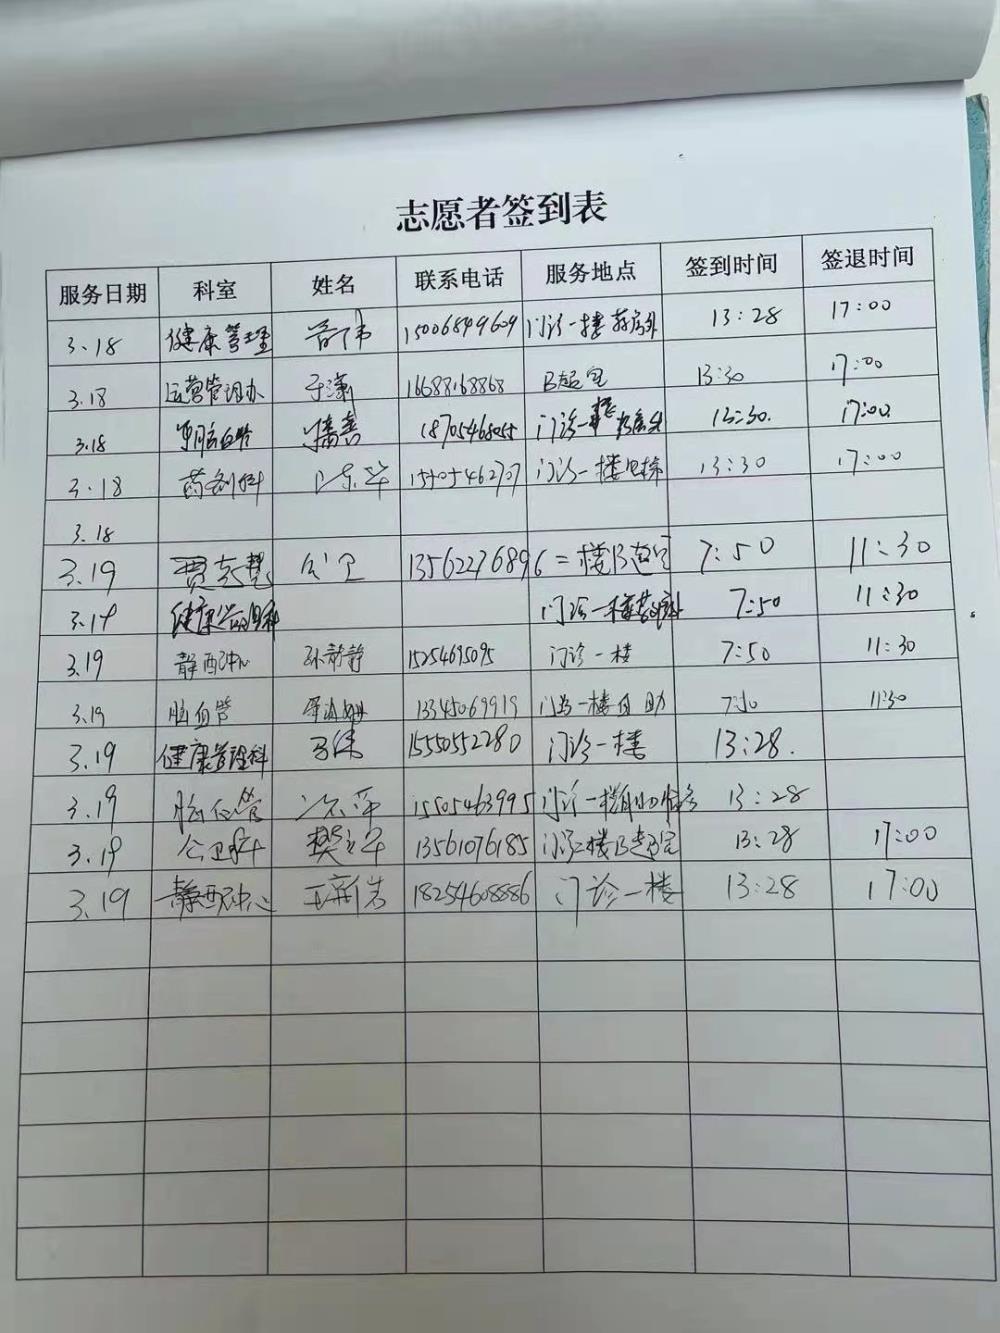 志愿者签到表
服务日期 科室 姓名 联系电话 服务地点 签到时间 签退时间
3.18 健康管理 15006849609 门诊一楼药房外 13:28 17:00
3.18 运营管理办 于潇 16688168868 B超室 13:30 17:00
3.18 18705468055 门诊一楼 13:30. 17:00
3.18 药剂科 门诊一楼电梯 13:30 17:00
3.18
3.19 贾 公卫 13562276896 二楼B超室 7:50 11:30
3.19 健康管理科 门诊一楼 7:50 11:30
3.19 静配中心 孙静静 15254695095 门诊一楼 7:50 11:30
3.19 脑血管 13345069919 门诊一楼自助 7:50 11:30
3.19 健康管理科 15550552280 门诊一楼 13:28.
3.19 脑血管 15505463995 门诊一楼 13:28
3.19 公卫科 樊 13561076185 楼B超室 13:28 17:00
3.19 静配中心 王新 18254608886 门诊一楼 13:28 17:00